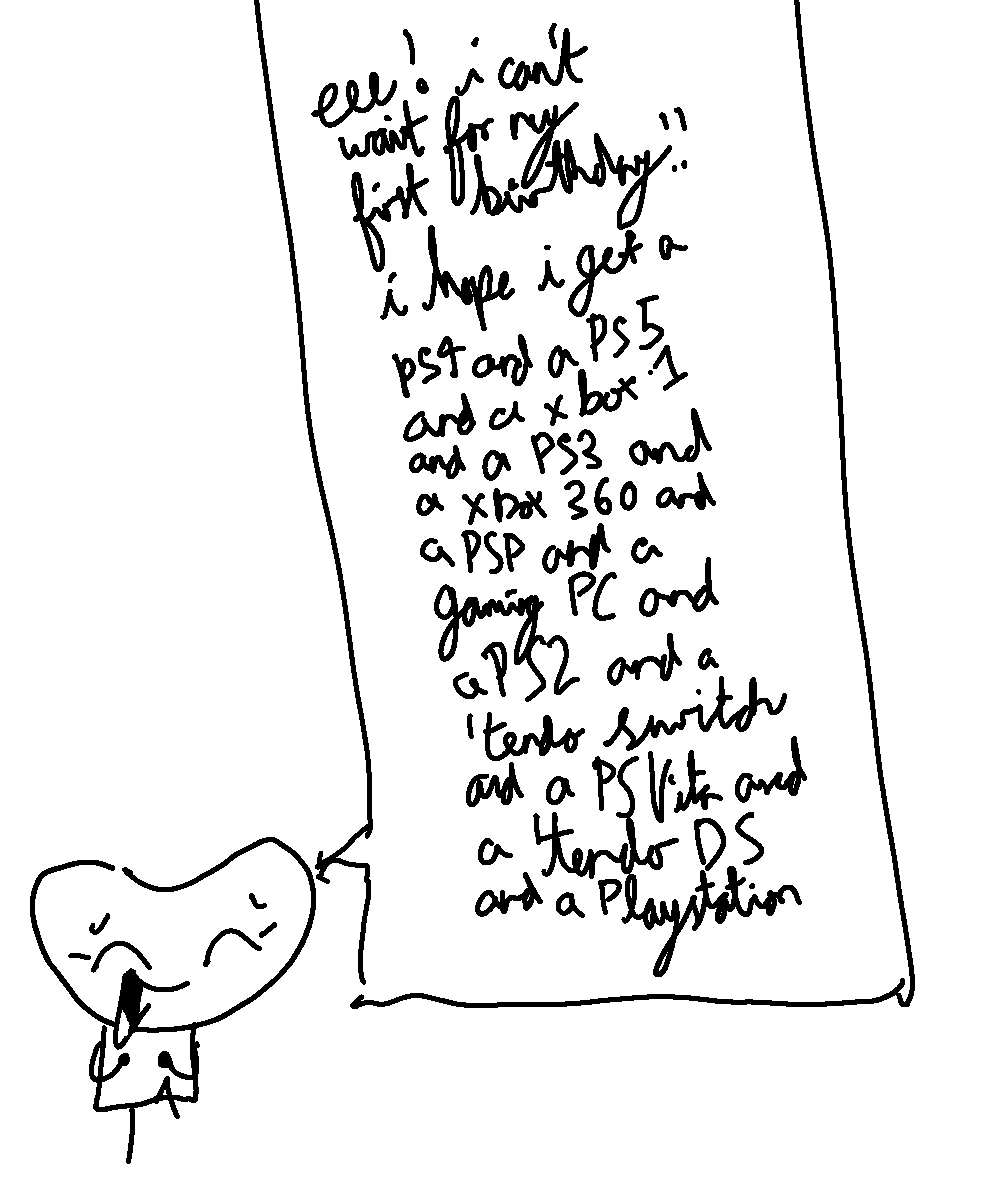 eee! i can't
wait for my
first birthday!!
i hope i get a
ps4 and a PS5
and a xbox 1
and a PS3 and
a xbox 360 and
a PSP and a
gaming PC and
a PS2 and a
'tendo switch
and a PS Vita and
a 'tendo DS
and a Playstation